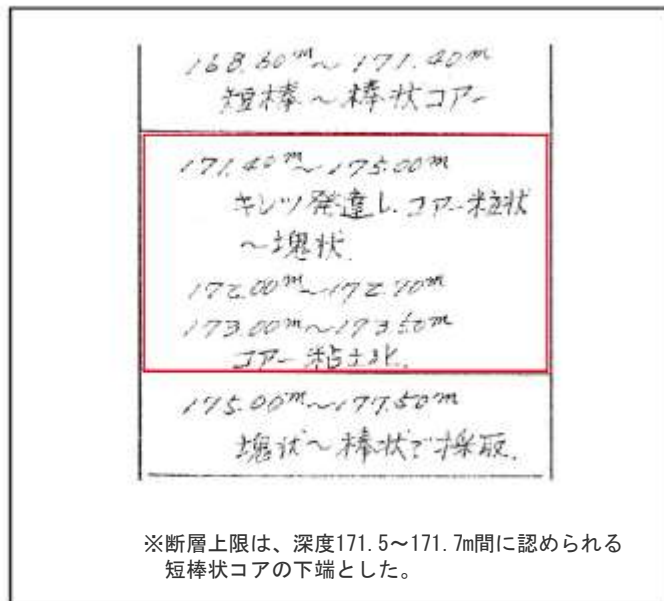 168.60m～171.40m
短棒～棒状コアー
171.40m～175.00m
キレツ発達し、コアー粒状
～塊状.
172.00m～172.70m
173.00m～173.50m
コアー粘土化.
175.00m～177.50m
塊状～棒状で採取.
※断層上限は、深度171.5～171.7m間に認められる
短棒状コアの下端とした。